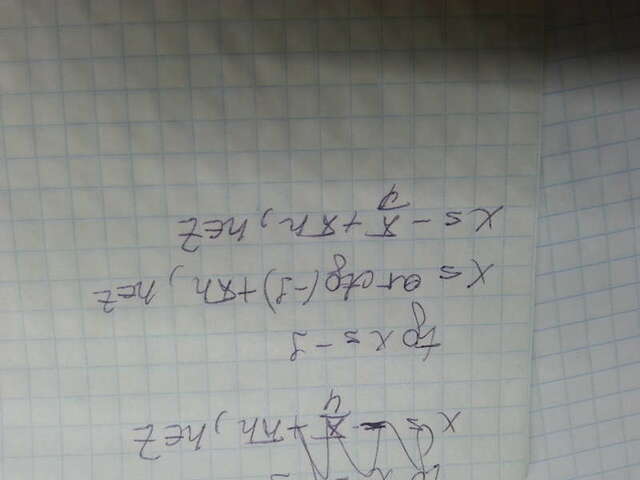 x = -π/4 + πn, n∈Z
tg x = -1
x = arctg(-1) + πn, n∈Z
x = -π/4 + πn, n∈Z